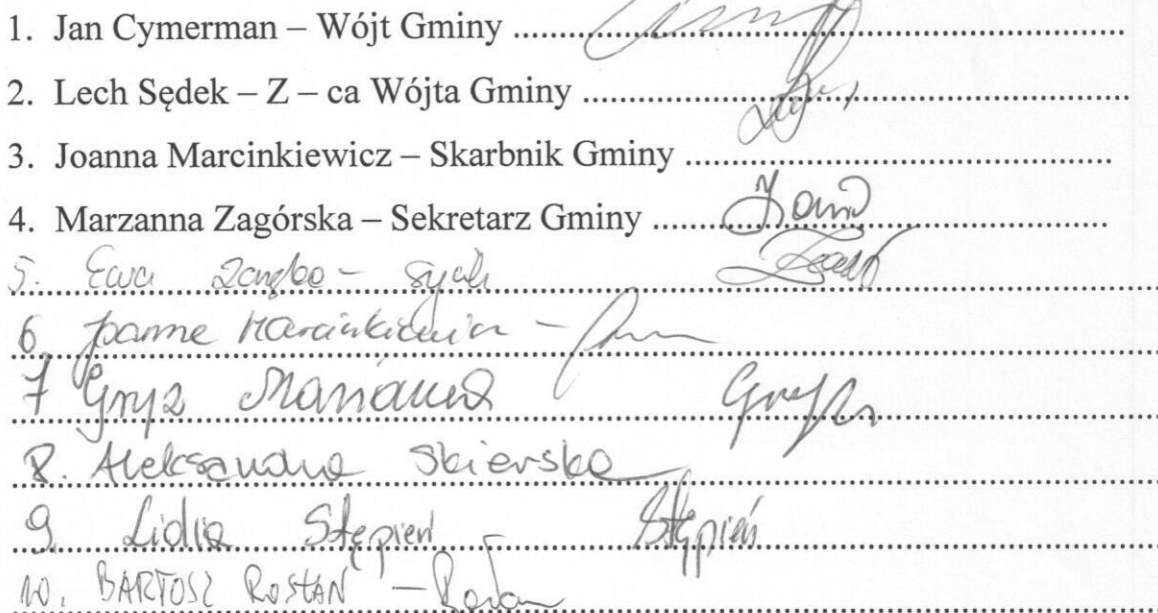 1. Jan Cymerman – Wójt Gminy ...............................................................
2. Lech Sędek – Z – ca Wójta Gminy ........................................................
3. Joanna Marcinkiewicz – Skarbnik Gminy ...........................................
4. Marzanna Zagórska – Sekretarz Gminy ..............................................
5. Ewa
6. Joanna Marcinkiewicz –
7 Gryz Marianna Gryz
8. Aleksandra Skierska
9. Lidia Stępień Stępień
10. BARTOSZ ROSŁAN –